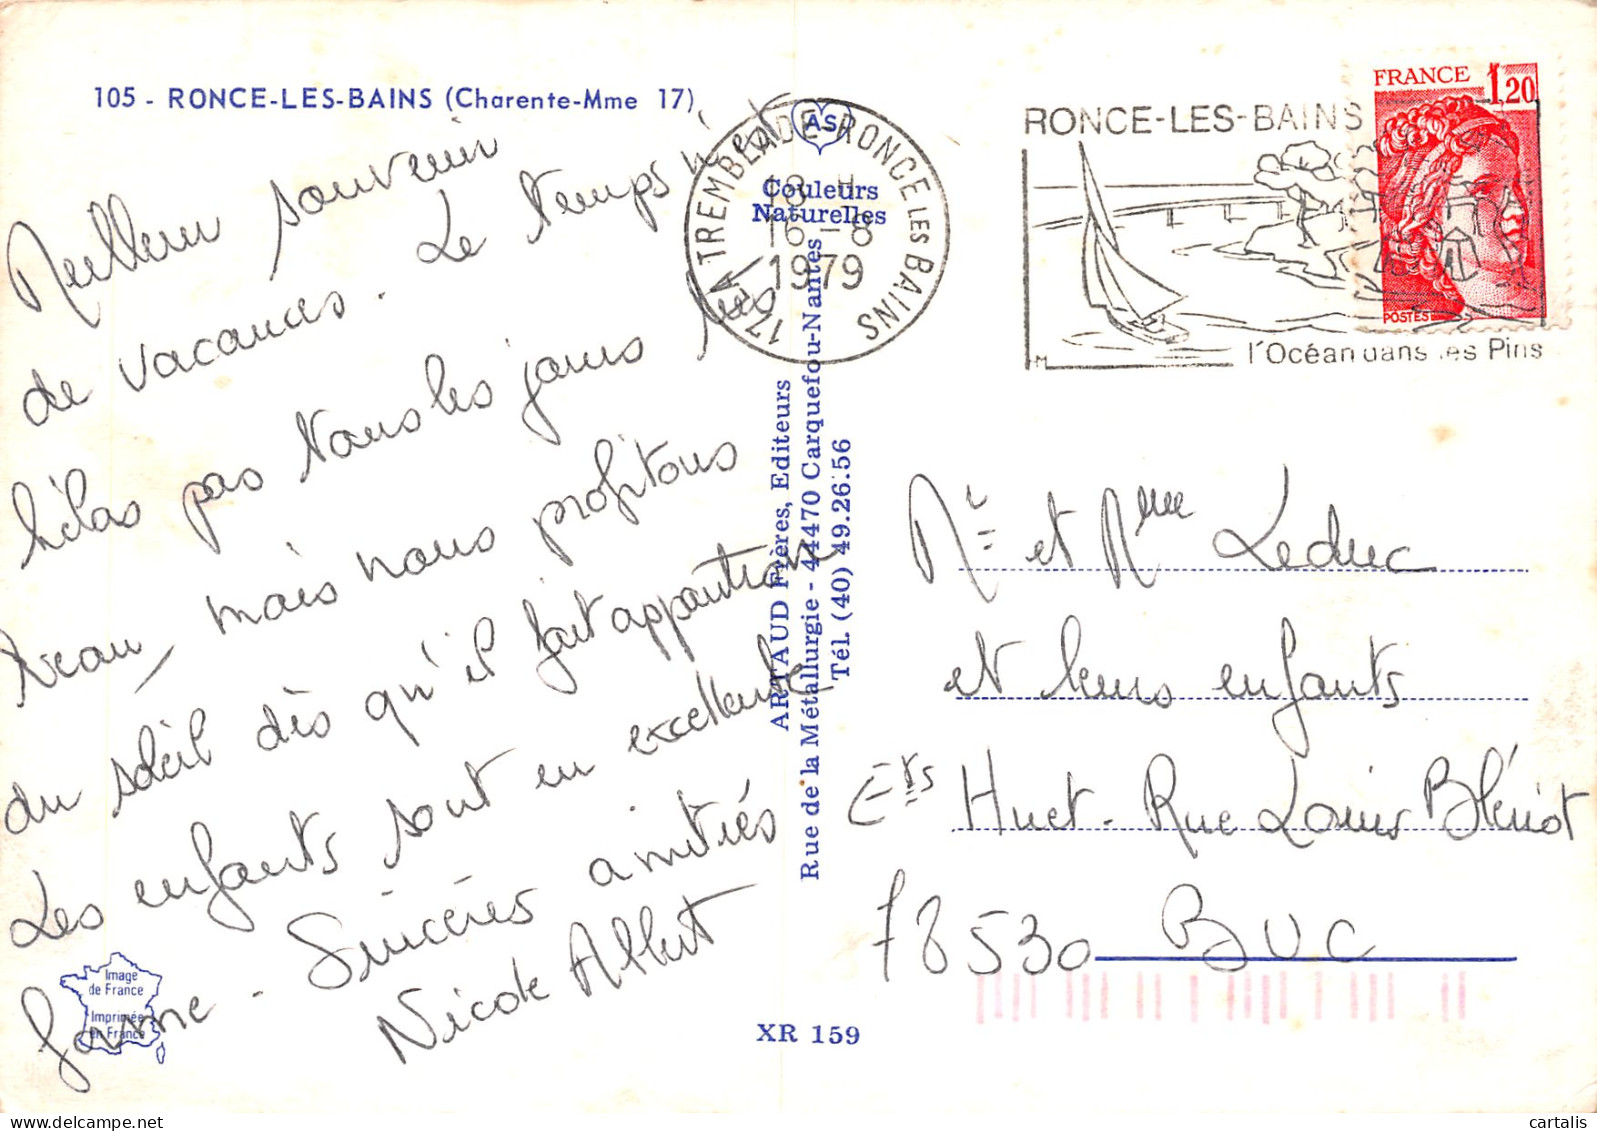 105 - RONCE-LES-BAINS (Charente-Mme 17)
Meilleur souvenir
de vacances. Le temps n'est
hélas pas tous les jours très
beau, mais nous profitons
du soleil dès qu'il fait apparition
Les enfants sont en excellente
forme - Sincères amitiés
Nicole Albert
Image
de France
Imprimée
en France
AS
Couleurs
Naturelles
ARTAUD Frères, Editeurs
Rue de la Métallurgie - 44470 Carquefou-Nantes
Tél. (40) 49.26.56
XR 159
17 LA TREMBLADE - RONCE LES BAINS
18 H
16 - 8
1979
RONCE-LES-BAINS
l'Océan dans les Pins
M
FRANCE 1,20
POSTES
Mr et Mme Leduc
et leurs enfants
Ets Huet - Rue Louis Blériot
78530 BUC
cartalis